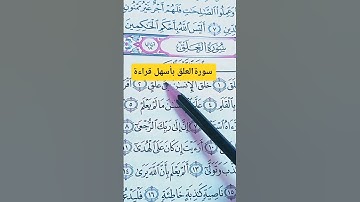 وَعَمِلُوا۟ ٱلصَّـٰلِحَـٰتِ فَلَهُمْ أَجْرٌ غَيْرُ مَمْنُونٍ
أَلَيْسَ ٱللَّهُ بِأَحْكَمِ ٱلْحَـٰكِمِينَ
سُورَةُ العَلَقِ
سورة العلق بأسهل قراءة
خَلَقَ ٱلْإِنسَـٰنَ مِنْ عَلَقٍ ٢
بِٱلْقَلَمِ ٤ عَلَّمَ مَا لَمْ يَعْلَمْ ٥
إِنَّ إِلَىٰ رَبِّكَ ٱلرُّجْعَىٰٓ ٨
أَرَءَيْتَ إِن كَانَ عَلَى ٱلْهُدَىٰٓ
وَتَوَلَّىٰٓ ١٣ أَلَمْ يَعْلَم بِأَنَّ ٱللَّهَ يَرَىٰ
١٥ نَاصِيَةٍ كَـٰذِبَةٍ خَاطِئَةٍ ١٦ فَلْيَدْعُ